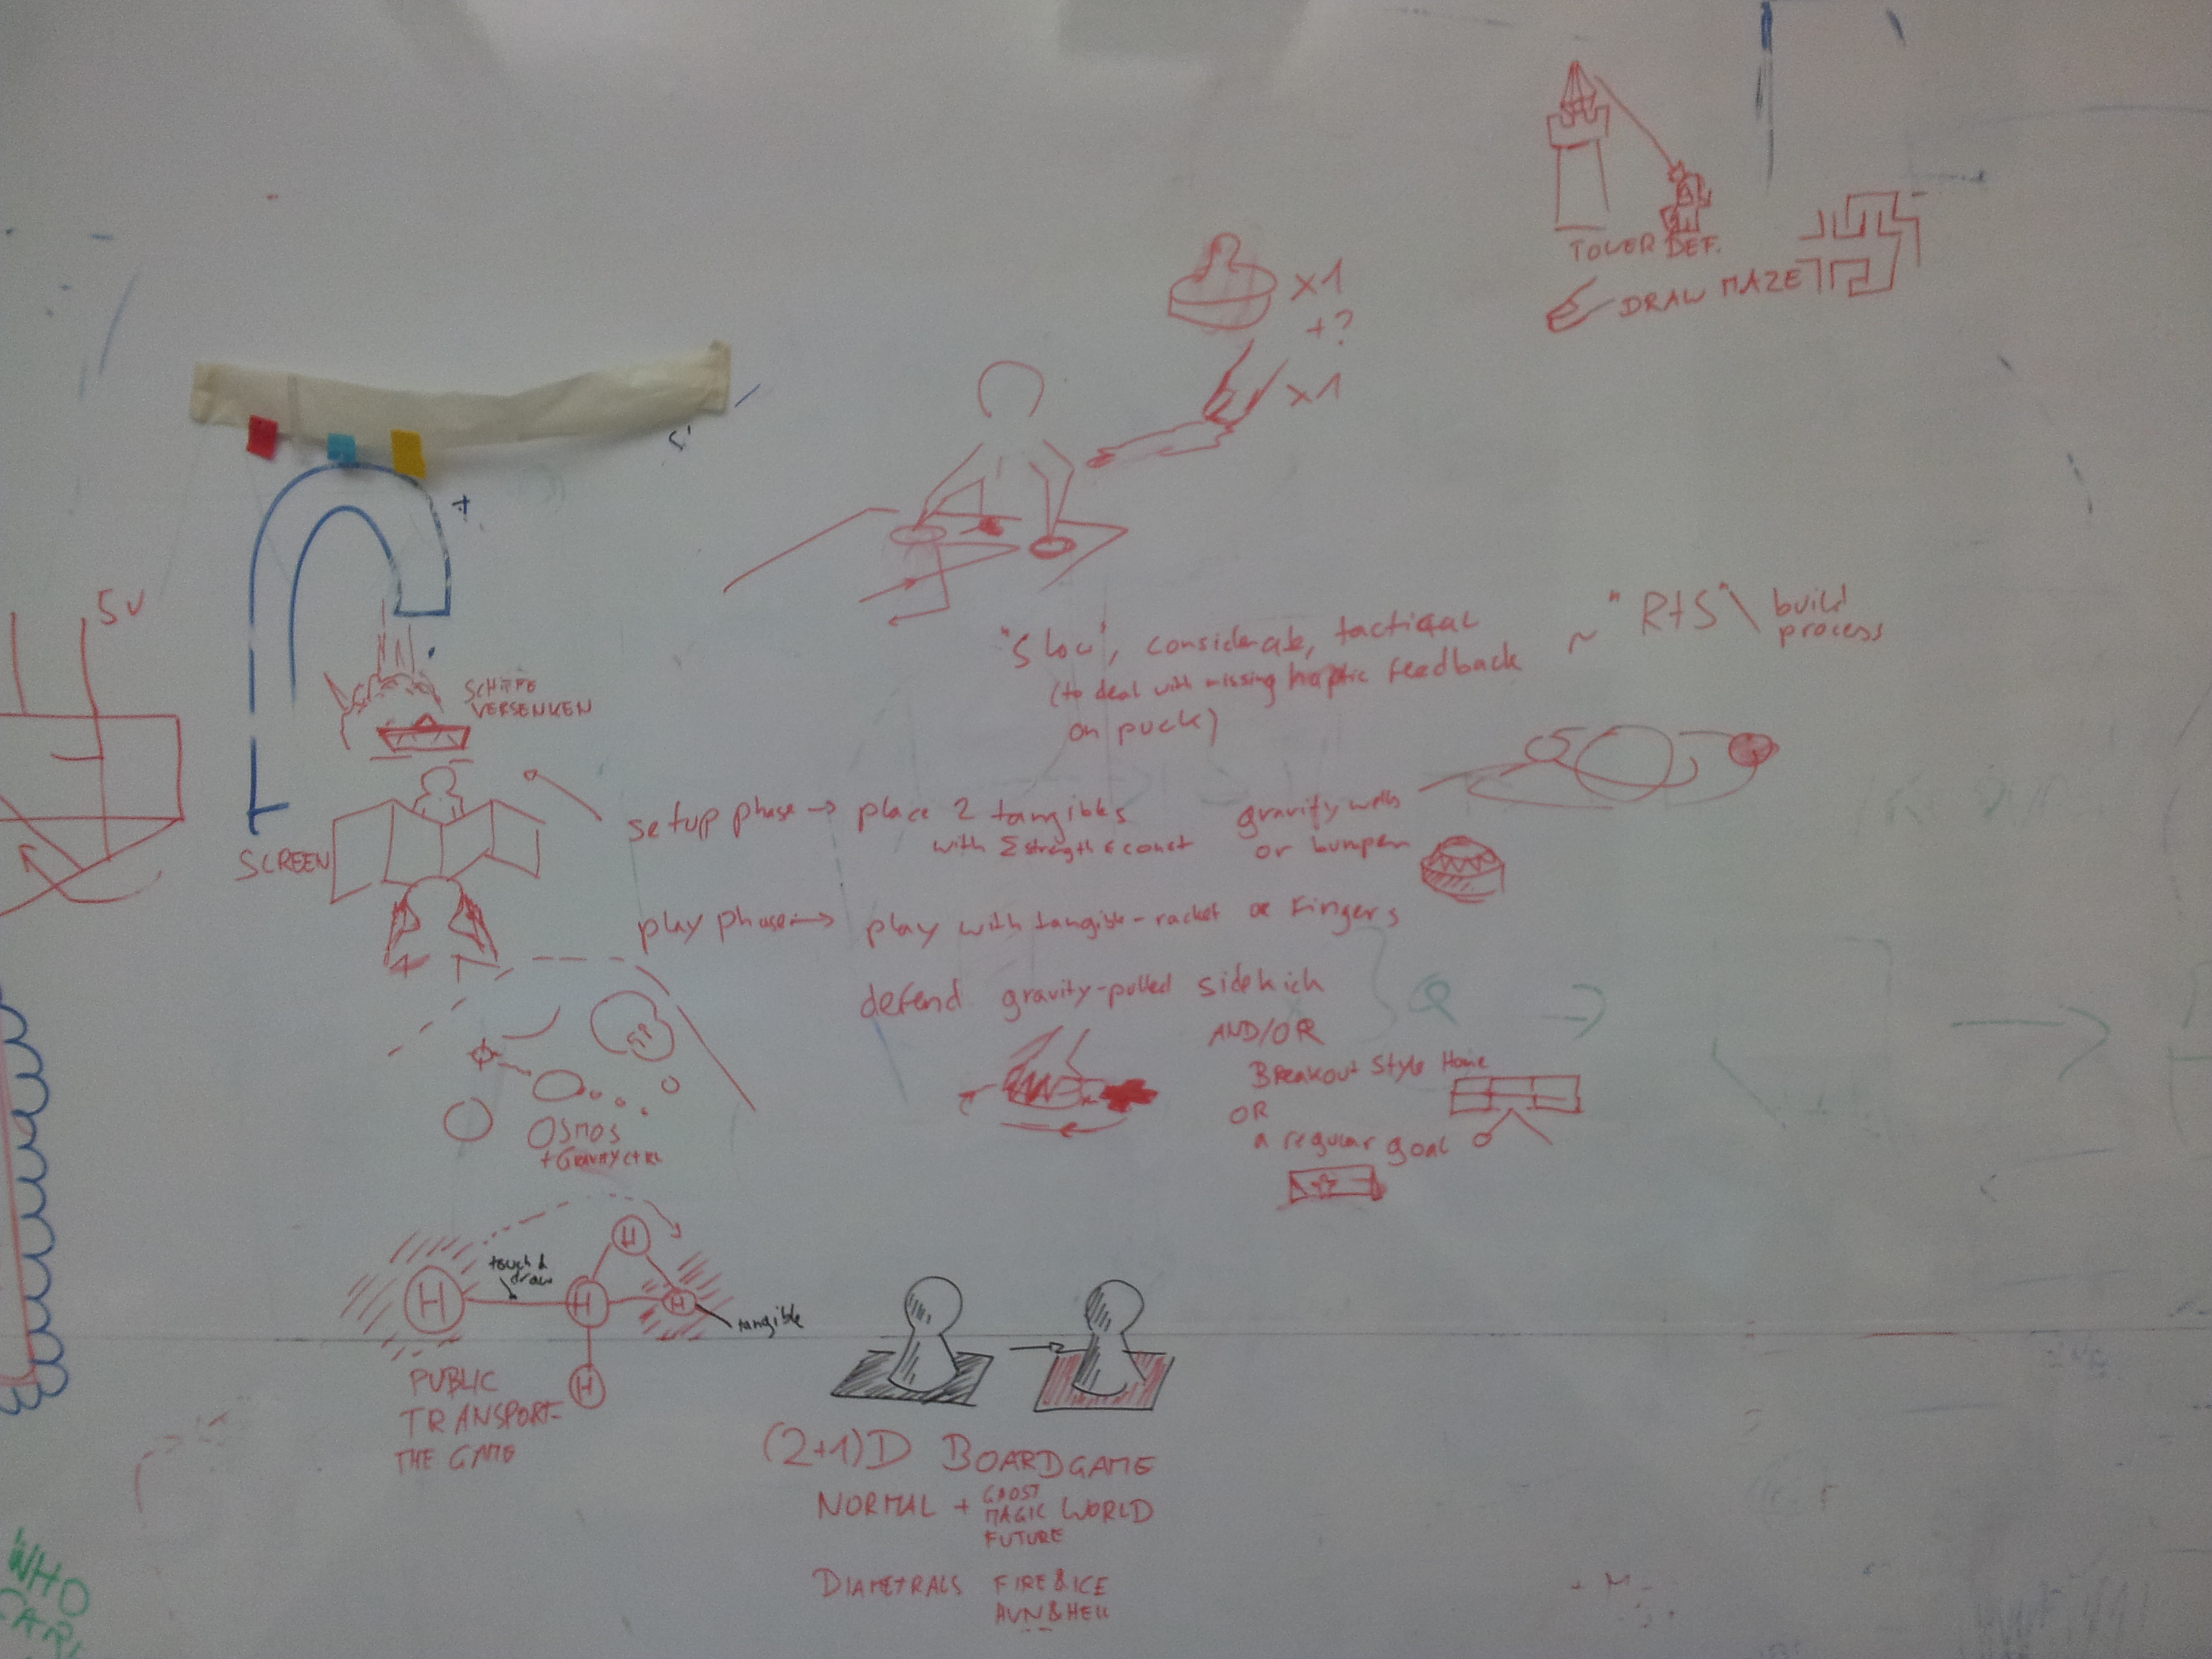 TOWER DEF.
DRAW MAZE
x1
+?
x1
5V
+
"Slow", considerate, tactical ~ "RTS" \ build process
(to deal with missing haptic feedback
on puck)
SCHIFFE
VERSENKEN
SCREEN
setup phase → place 2 tangibles
with Σ strength = const
gravity wells
or bumper
play phase → play with tangible-racket or fingers
defend gravity-pulled sidekick
AND/OR
Breakout Style Home
OR
a regular goal
OSMOS
+ GRAVITY CTRL
H
H
H
H
H
touch &
draw
tangible
PUBLIC
TRANSPORT-
THE GAME
(2+1)D BOARDGAME
NORMAL + GHOST
MAGIC WORLD
FUTURE
DIAMETRALS FIRE & ICE
WHO